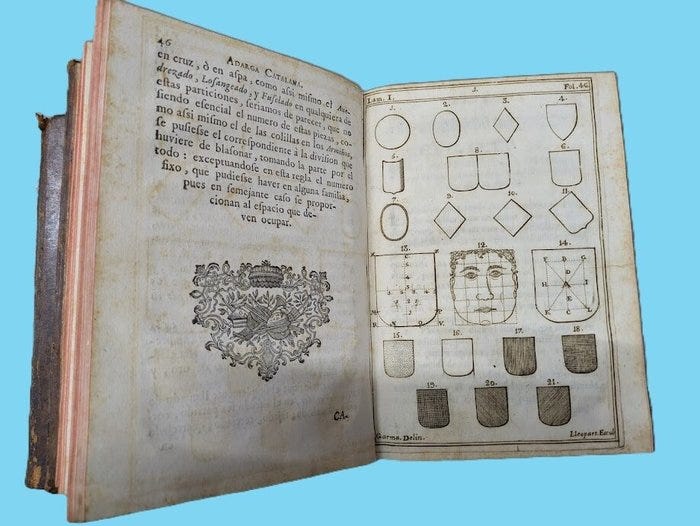 46 ADARGA CATALANA.
en cruz, ò en aspa, como assi mismo el Axe-
drezado, Losangeado, y Fuselado en qualquiera de
estas particiones, seriamos de parecer, que no
siendo esencial el numero de estas piezas, co-
mo assi mismo el de las colillas en los Armiños,
se pusiesse el correspondiente à la division que
huviere de blasonar, tomando la parte por el
todo: exceptuandose en esta regla el numero
fixo, que pudiesse haver en alguna familia,
pues en semejante caso se propor-
cionan al espacio que de-
ven ocupar.
CA-
Lam. I. Fol. 46
1. 2. 3. 4.
5. 8. 6.
7. 9. 10. 11.
13. 12. 14.
15. 16. 17. 18.
19. 20. 21.
Garma. Delin.